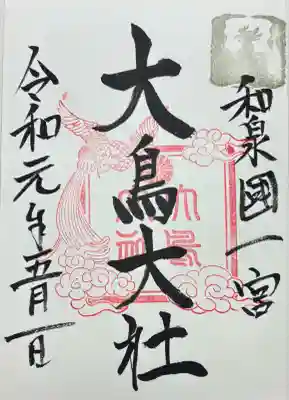 和泉國一宮
大鳥大社
令和元年五月一日
大鳥大社